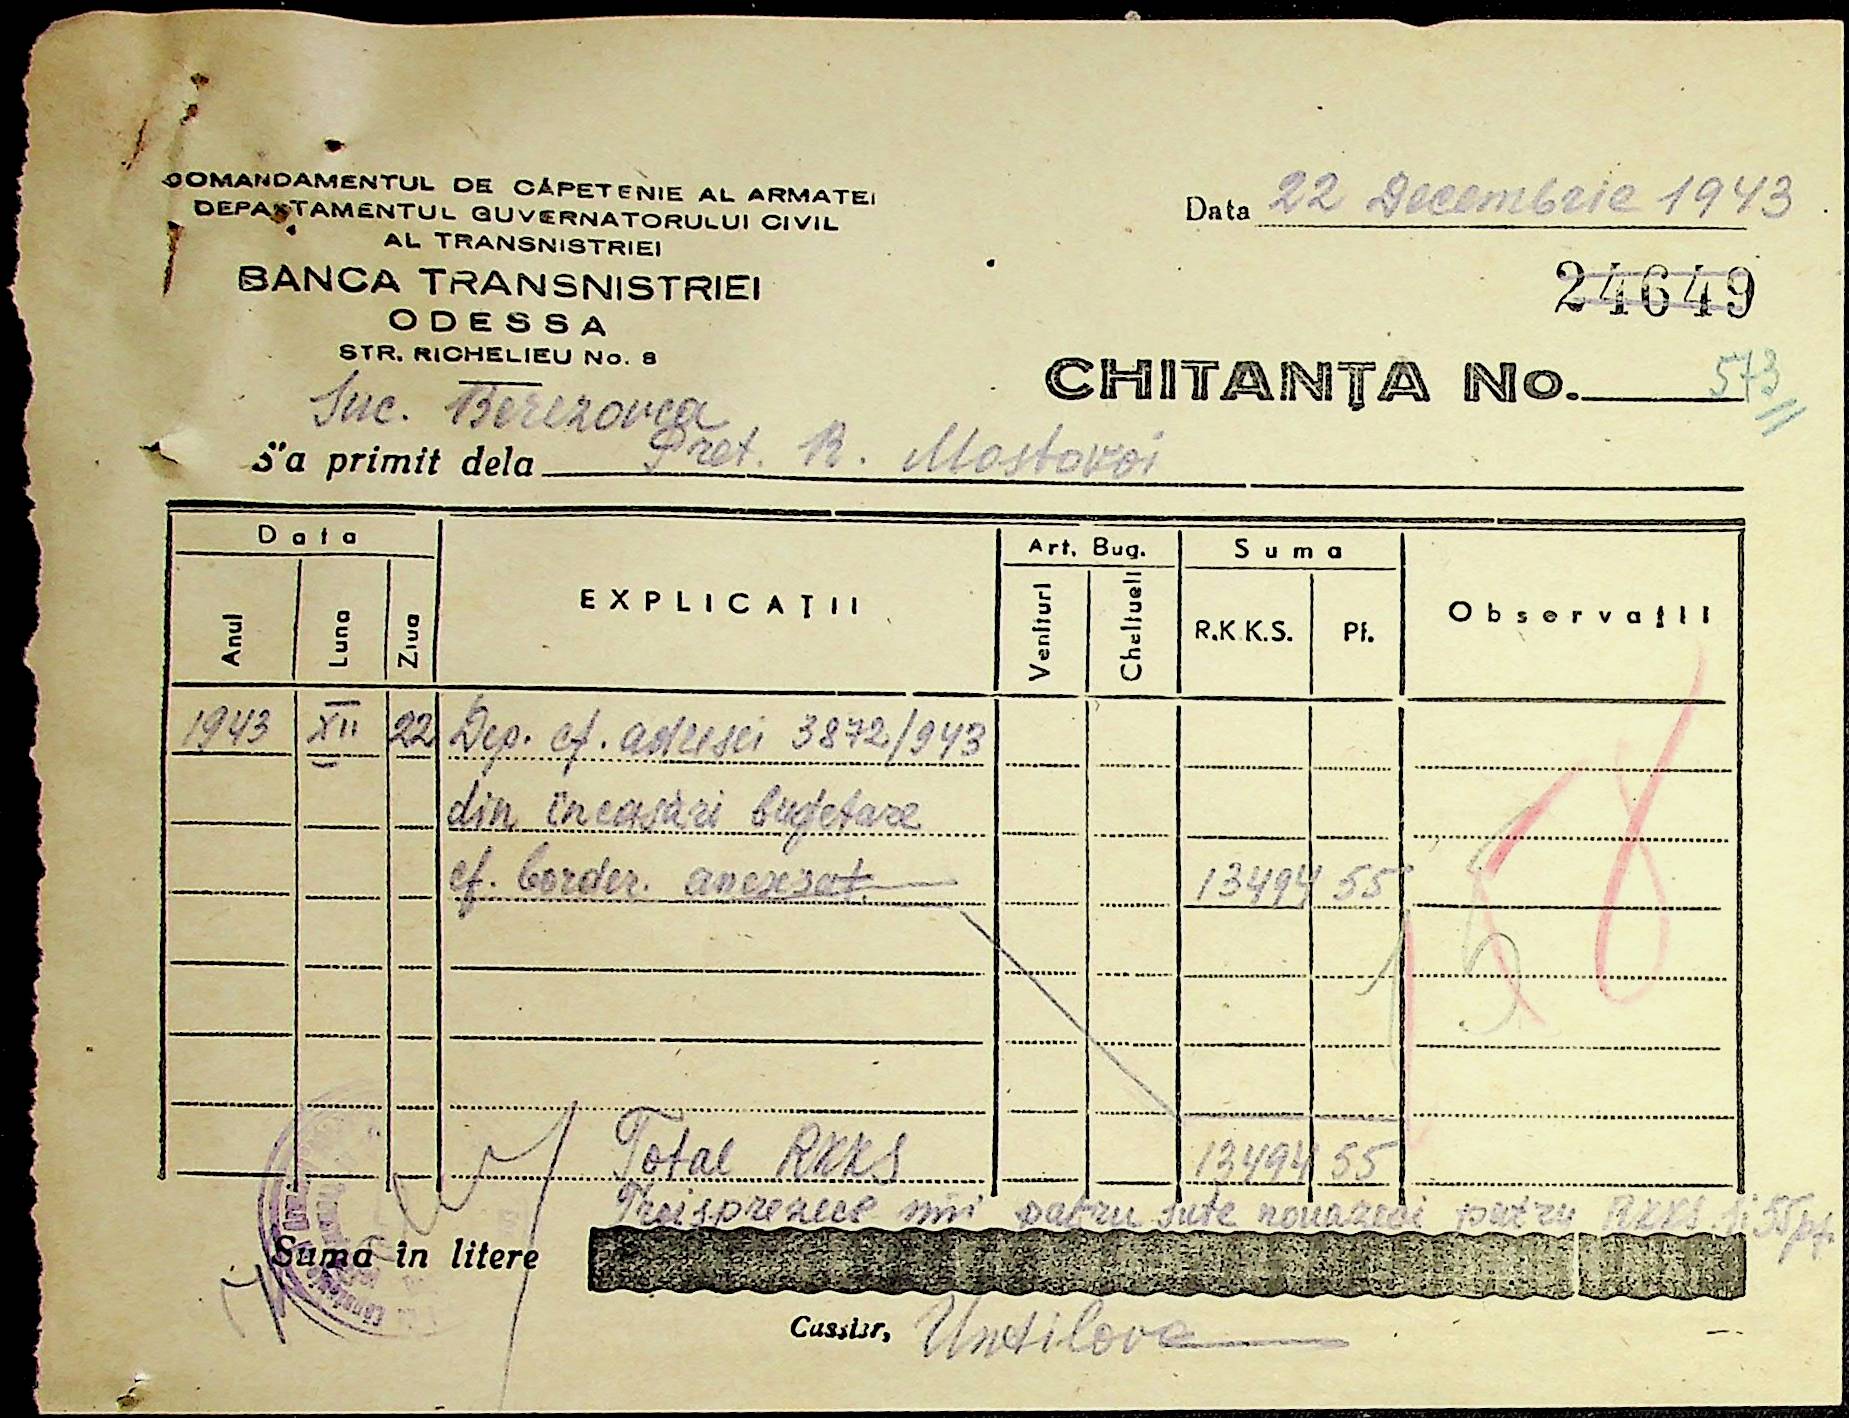 COMANDAMENTUL DE CĂPETENIE AL ARMATEI
DEPARTAMENTUL GUVERNATORULUI CIVIL
AL TRANSNISTRIEI
BANCA TRANSNISTRIEI
ODESSA
STR. RICHELIEU No. 8
Suc. Berezovca
Data 22 Decembrie 1943
24649
CHITANȚA No. 573
S'a primit dela Pret. R. Mostovoi
Data EXPLICAȚII Art. Bug. Suma Observații
Anul Luna Ziua Venituri Cheltueli R.K.K.S. Pf.
1943 XII 22 Dep. cf. adresei 3872/943
din încasări bugetare
cf. border. anexat 13494 55
158
Total RKKS 13494 55
Treisprezece mii patru sute nouazeci patru RKKS și 55 pf.
Suma în litere
Cassier, Untilova